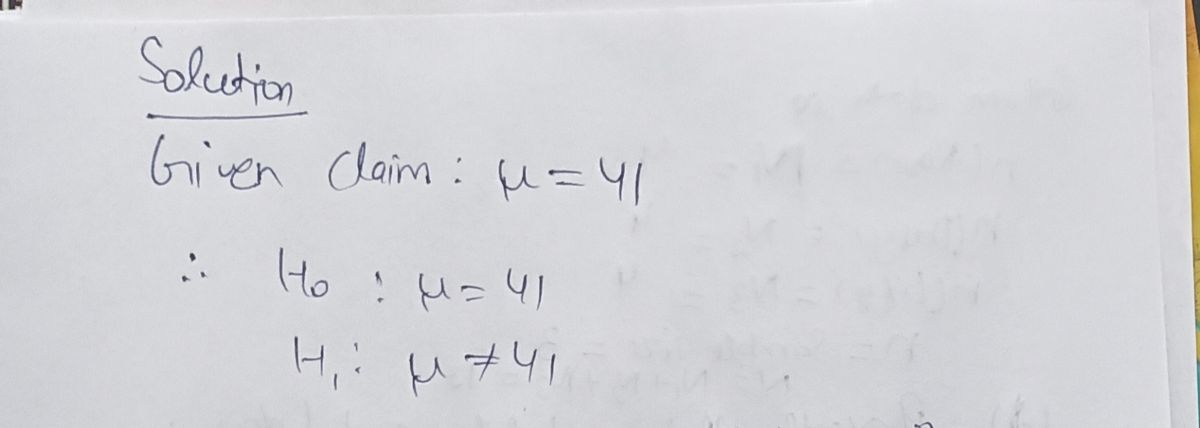 Solution
Given claim: μ = 41
∴ H₀ : μ = 41
H₁: μ ≠ 41